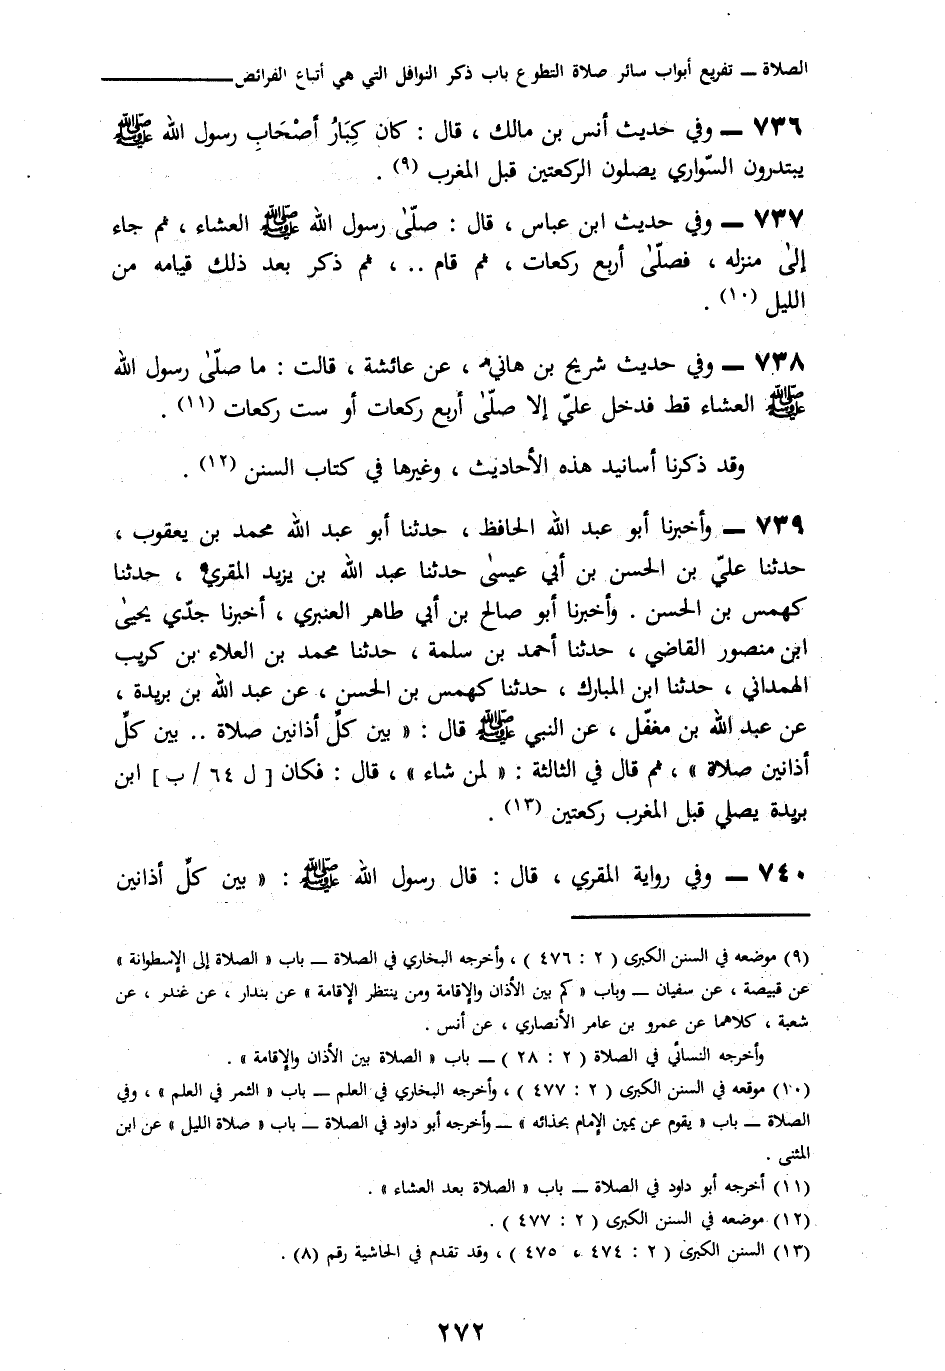 الصلاة ــ تفريع أبواب سائر صلاة التطوع باب ذكر النوافل التي هي أتباع الفرائض
٧٣٦ ــ وفي حديث أنس بن مالك ، قال : كان كِبَارُ أصْحَابِ رسول الله ﷺ
يبتدرون السّواري يصلون الركعتين قبل المغرب (٩) .
٧٣٧ ــ وفي حديث ابن عباس ، قال : صلّىٰ رسول الله ﷺ العشاء ، ثم جاء
إلىٰ منزله ، فصلّىٰ أربع ركعات ، ثم قام .. ، ثم ذكر بعد ذلك قيامه من
الليل (١٠) .
٧٣٨ ــ وفي حديث شريح بن هانيء ، عن عائشة ، قالت : ما صلّىٰ رسول الله
ﷺ العشاء قط فدخل عليّ إلا صلّىٰ أربع ركعات أو ست ركعات (١١) .
وقد ذكرنا أسانيد هذه الأحاديث ، وغيرها في كتاب السنن (١٢) .
٧٣٩ ــ وأخبرنا أبو عبد الله الحافظ ، حدثنا أبو عبد الله محمد بن يعقوب ،
حدثنا عليّ بن الحسن بن أبي عيسىٰ حدثنا عبد الله بن يزيد المقريء ، حدثنا
كهمس بن الحسن . وأخبرنا أبو صالح بن أبي طاهر العنبري ، أخبرنا جدّي يحيىٰ
ابن منصور القاضي ، حدثنا أحمد بن سلمة ، حدثنا محمد بن العلاء بن كريب
الهمداني ، حدثنا ابن المبارك ، حدثنا كهمس بن الحسن ، عن عبد الله بن بريدة ،
عن عبد الله بن مغفّل ، عن النبي ﷺ قال : « بين كلِّ أذانين صلاة .. بين كلِّ
أذانين صلاة » ، ثم قال في الثالثة : « لمن شاء » ، قال : فكان [ ل ٦٤ / ب ] ابن
بريدة يصلي قبل المغرب ركعتين (١٣) .
٧٤٠ ــ وفي رواية المقري ، قال : قال رسول الله ﷺ : « بين كلِّ أذانين
(٩) موضعه في السنن الكبرى ( ٢ : ٤٧٦ ) ، وأخرجه البخاري في الصلاة ــ باب « الصلاة إلى الإسطوانة »
عن قبيصة ، عن سفيان ــ وباب « كم بين الأذان والإقامة ومن ينتظر الإقامة » عن بندار ، عن غندر ، عن
شعبة ، كلاهما عن عمرو بن عامر الأنصاري ، عن أنس .
وأخرجه النسائي في الصلاة ( ٢ : ٢٨ ) ــ باب « الصلاة بين الأذان والإقامة » .
(١٠) موقعه في السنن الكبرى ( ٢ : ٤٧٧ ) ، وأخرجه البخاري في العلم ــ باب « الثمر في العلم » ، وفي
الصلاة ــ باب « يقوم عن يمين الإمام بحذائه » ــ وأخرجه أبو داود في الصلاة ــ باب « صلاة الليل » عن ابن
المثنى .
(١١) أخرجه أبو داود في الصلاة ــ باب « الصلاة بعد العشاء » .
(١٢) موضعه في السنن الكبرى ( ٢ : ٤٧٧ ) .
(١٣) السنن الكبرى ( ٢ : ٤٧٤ ، ٤٧٥ ) ، وقد تقدم في الحاشية رقم (٨) .
٢٧٢